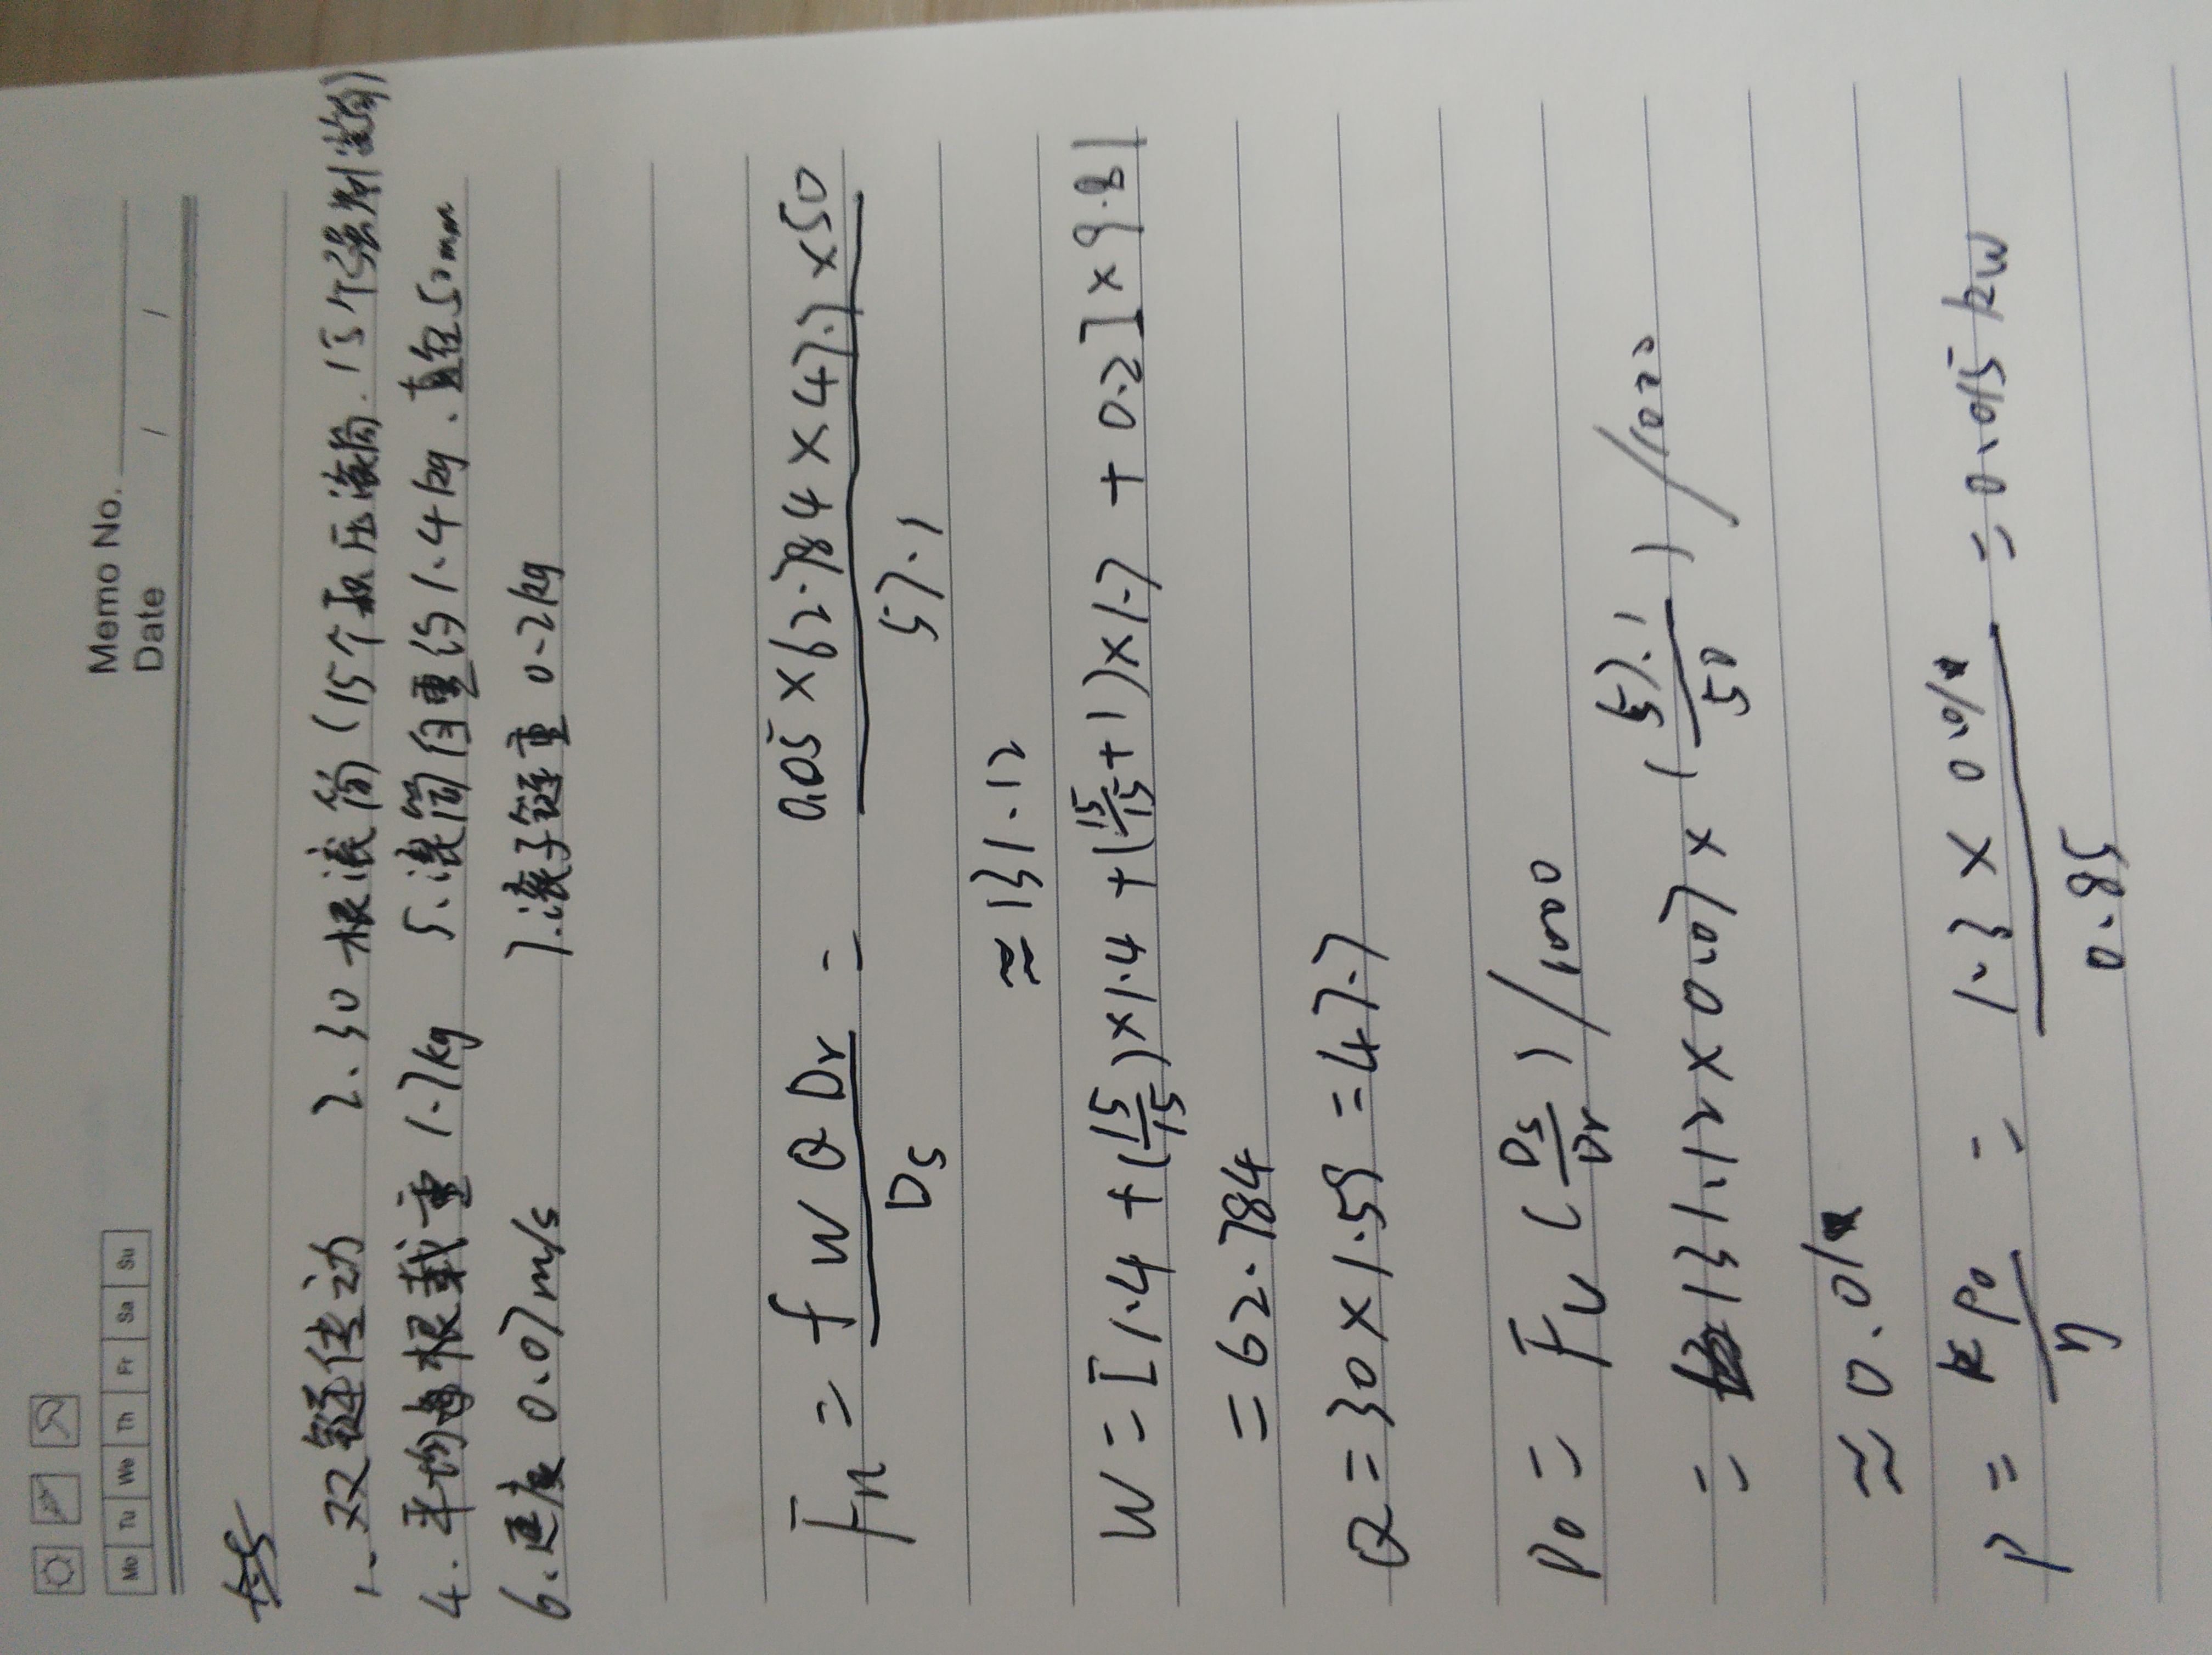 Memo No.
Mo Tu We Th Fr Sa Su
Date / /
1、双链传动 2、30根滚筒(15个积压滚筒、15个强制滚筒)
4、平均每根载重1.7kg 5、滚筒自重约1.4kg、直径50mm
6、速度0.07m/s 7、滚子链重0.2kg
Fn = f W Q Dr / Ds = 0.05×62.784×47.7×50 / 57.1
≈ 131.12
W = [1.4+(15/15)×1.4+(15/15+1)×1.7+0.2]×9.81
= 62.784
Q = 30×1.59 = 47.7
P0 = Fv(Ds/Dr)/1000
= 131.12×0.07×(57.1/50)/1000
≈ 0.01
P = KP0/η = 1.3×0.01/0.85 = 0.015kw